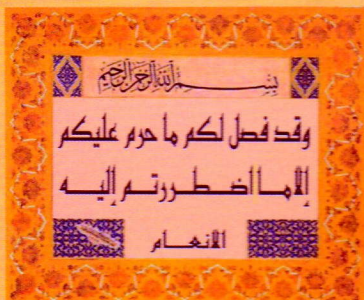 بسم الله الرحمن الرحيم
وقد فصل لكم ما حرم عليكم
إلا ما اضطررتم إليه
الانعام